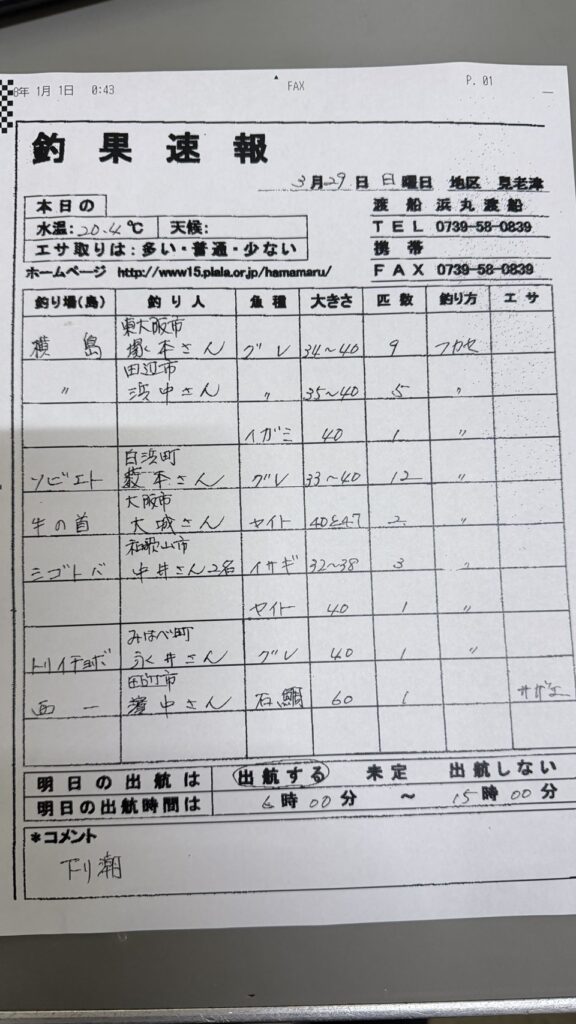 8年 1月 1日 0:43 FAX P. 01
釣果速報
3月29日 日曜日 地区 見老津
本日の
水温: 20.4℃ 天候:
エサ取りは:多い・普通・少ない
ホームページ http://www15.plala.or.jp/hamamaru/
渡船 浜丸渡船
TEL 0739-58-0839
携帯
FAX 0739-58-0839
釣り場(島) 釣り人 魚種 大きさ 匹数 釣り方 エサ
横島 東大阪市 塚本さん グレ 34~40 9 フカセ
〃 田辺市 浜中さん 〃 35~40 5 〃
イガミ 40 1 〃
ソビエト 白浜町 薮本さん グレ 33~40 12 〃
牛の首 大阪市 大城さん セイト 40と47 2 〃
シゴトバ 和歌山市 中井さん2名 イサギ 32~38 3 〃
セイト 40 1 〃
トリイチョボ みなべ町 永井さん グレ 40 1 〃
西一 田辺市 濱中さん 石鯛 60 1 サザエ
明日の出航は 出航する 未定 出航しない
明日の出航時間は 6時00分 ~ 15時00分
*コメント
下り潮